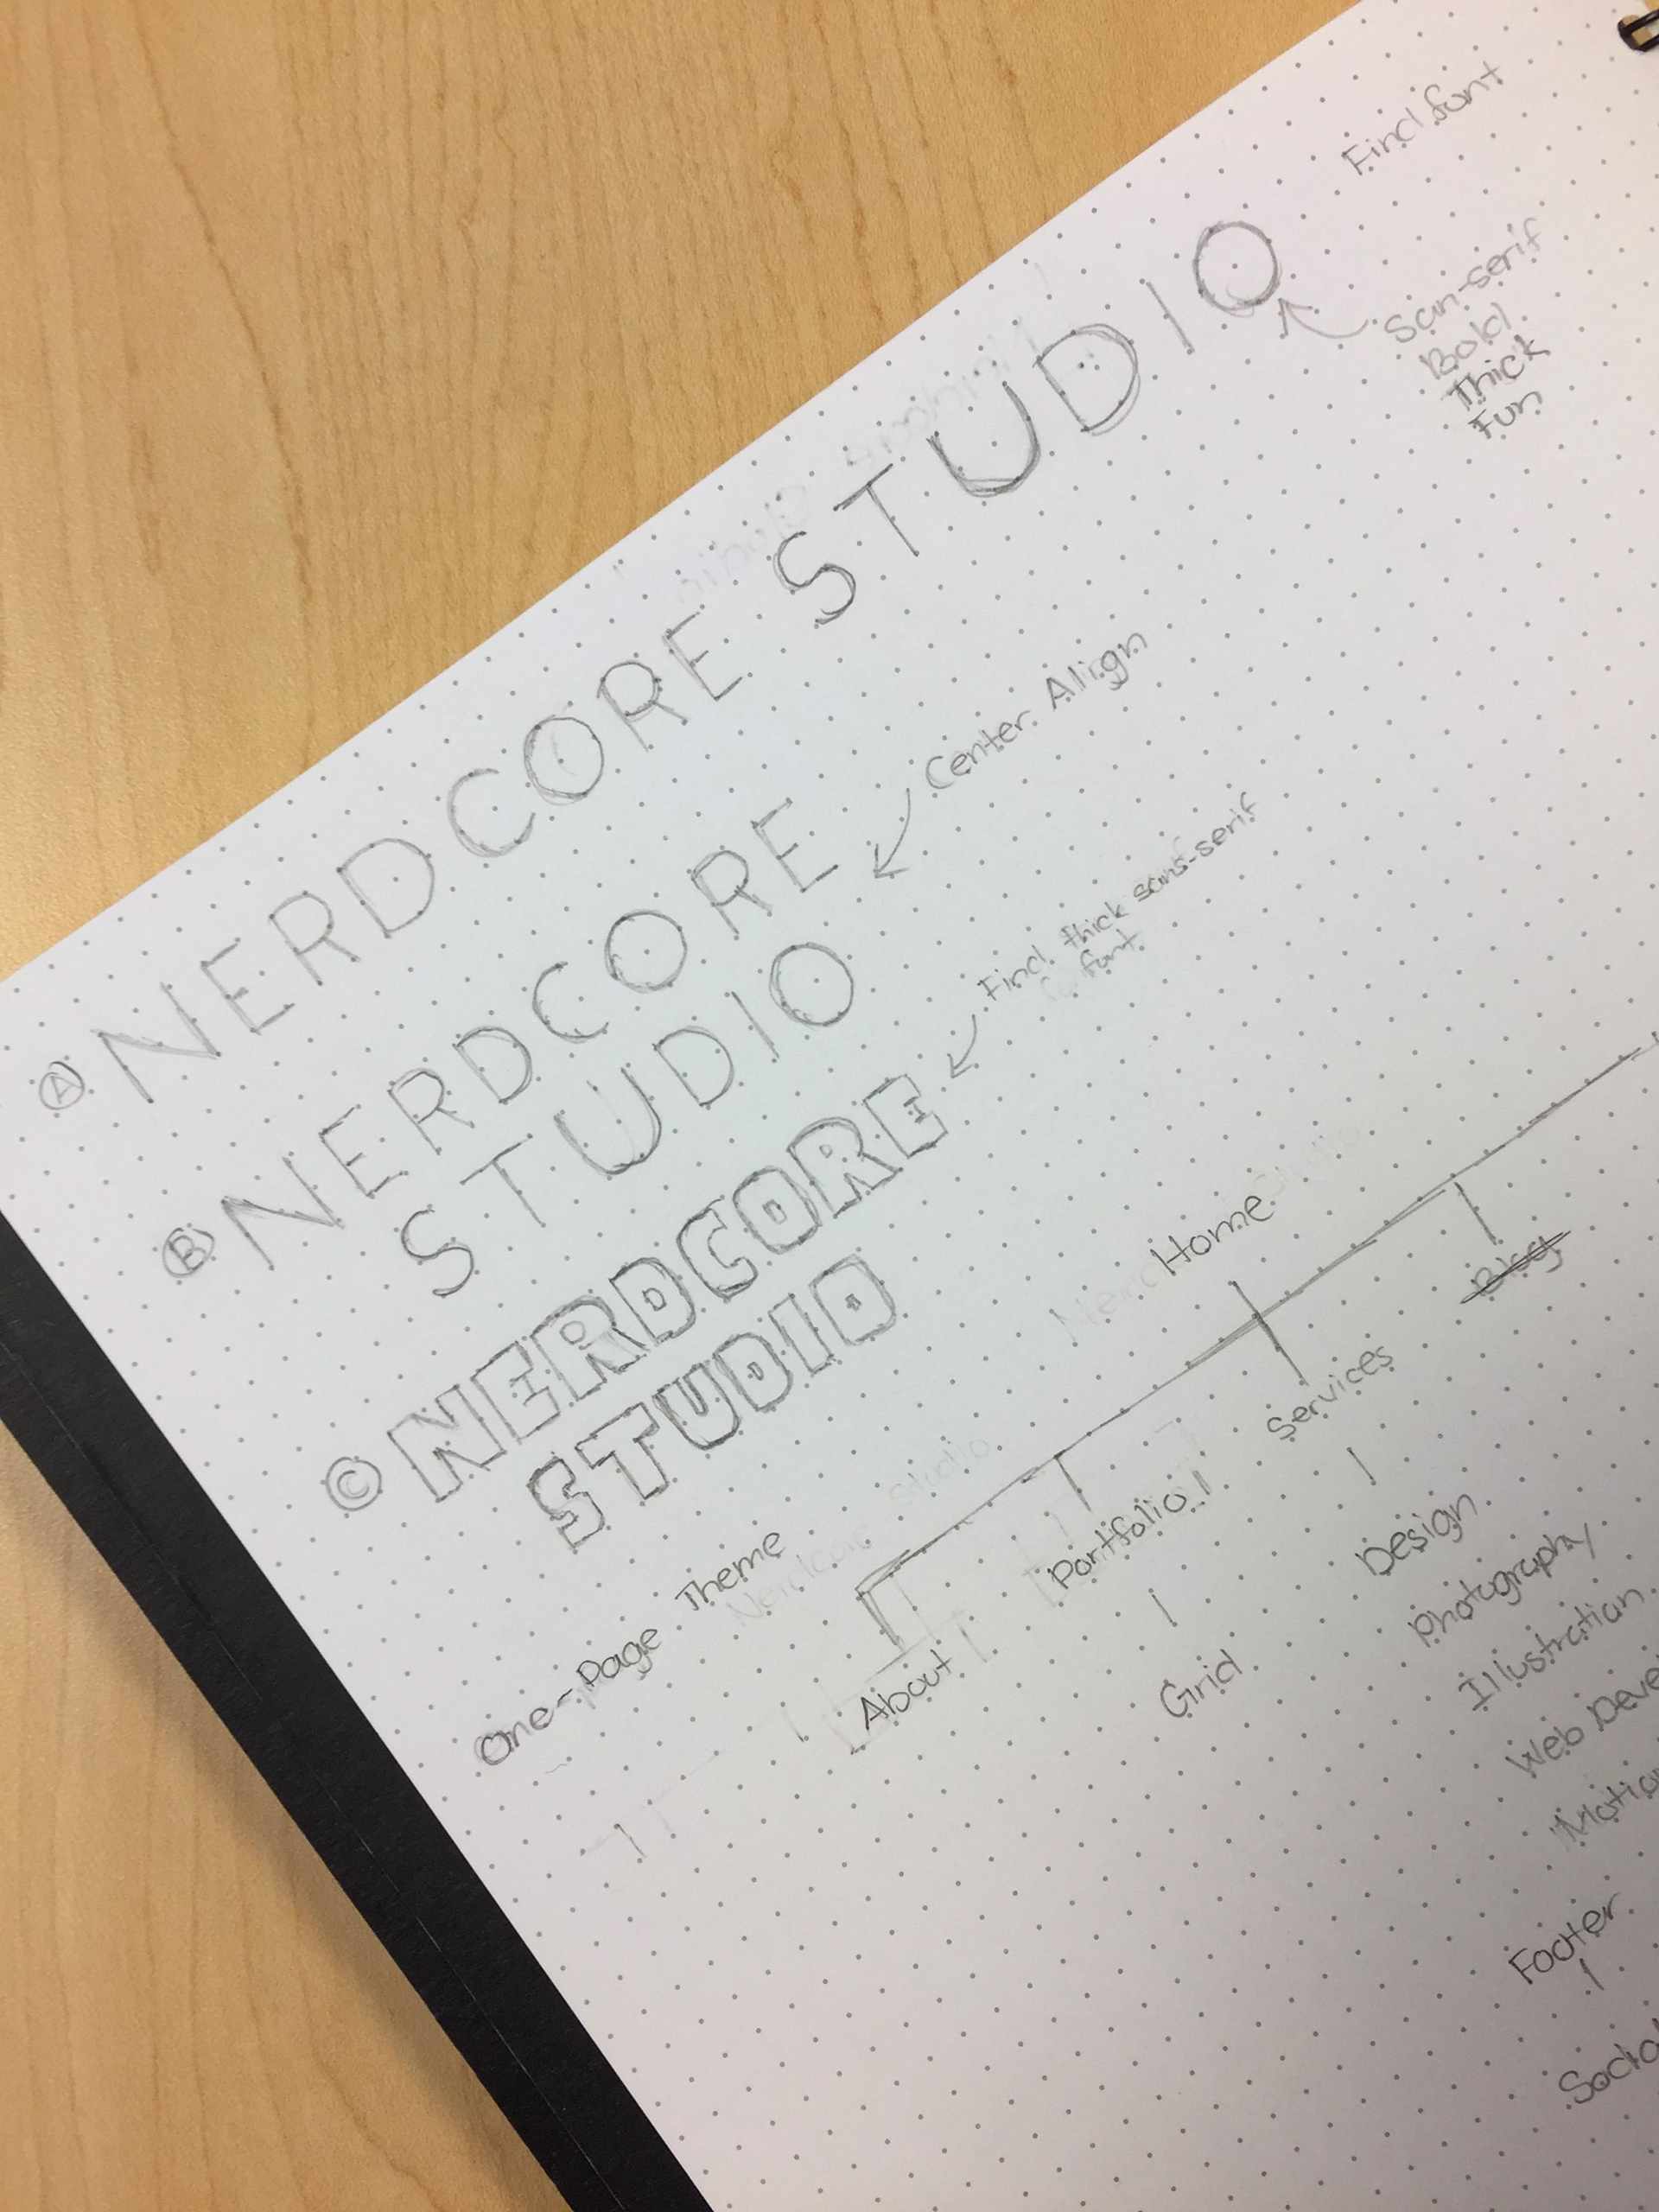 Find font
Ⓐ NERDCORE STUDIO
San-serif
Bold
Thick
Fun
Ⓑ NERDCORE
STUDIO
Center Align
Ⓒ NERDCORE
STUDIO
Find thick sans-serif
font
One-Page Theme
Home
About
Portfolio
Services
Blog
Grid
Design
Photography
Illustration
Web Deve
Motio
Footer
Social